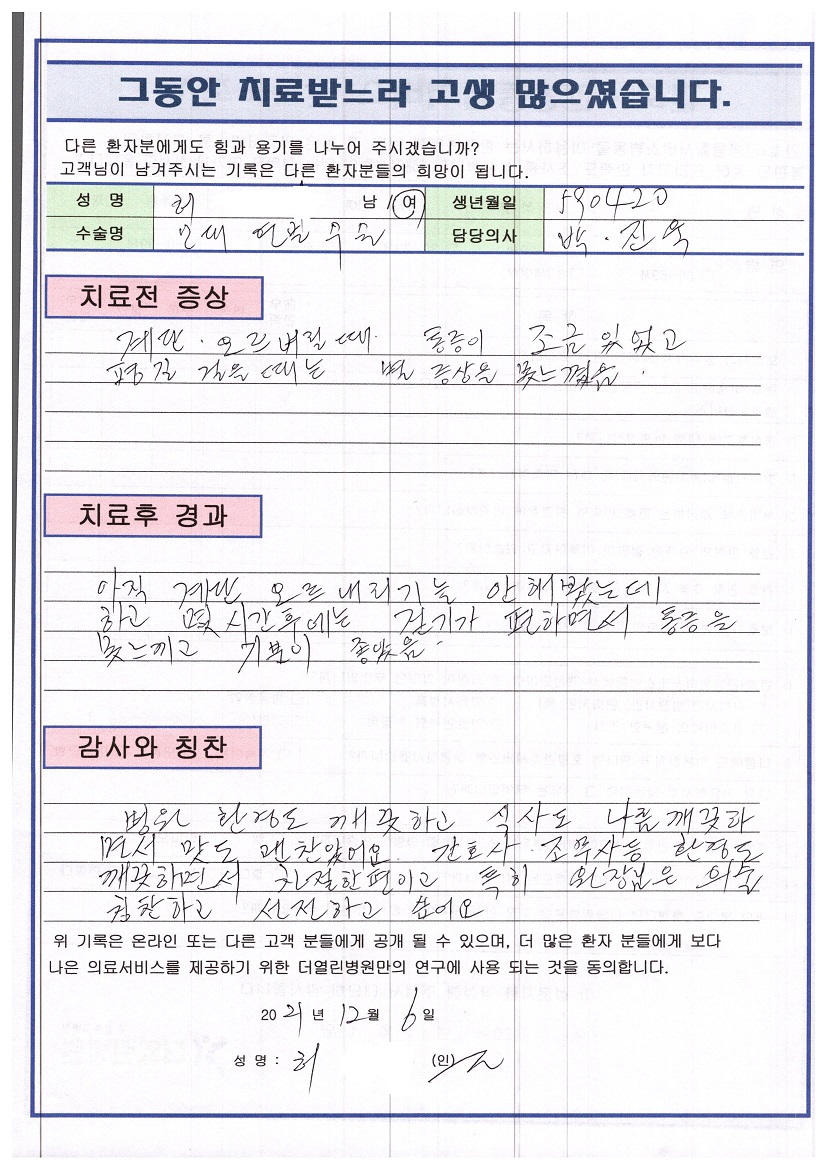 그동안 치료받느라 고생 많으셨습니다.
다른 환자분에게도 힘과 용기를 나누어 주시겠습니까?
고객님이 남겨주시는 기록은 다른 환자분들의 희망이 됩니다.
성 명 허 남 / 여 생년월일 590420
수술명 모대 연골 수술 담당의사 박·진욱
치료전 증상
계단·오르버릴때· 통증이 조금 있었고
평길 걸을 때는 별 증상을 못느꼈음.
치료후 경과
아직 계단 오르내리기는 안해봤는데
하고 몇시간후에는 걷기가 편하면서 통증을
못느끼고 기분이 좋았음.
감사와 칭찬
병원 한경도 깨끗하고 식사도 나름깨끗하
면서 맛도 괜찬았어요. 간호사·조무사등 한경도
깨끗하면서 친절한편이고 특히 원장님은 의술
칭찬하고 선전하고 싶어요
위 기록은 온라인 또는 다른 고객 분들에게 공개 될 수 있으며, 더 많은 환자 분들에게 보다
나은 의료서비스를 제공하기 위한 더열린병원만의 연구에 사용 되는 것을 동의합니다.
2021년 12월 6일
성 명 : 허 (인)